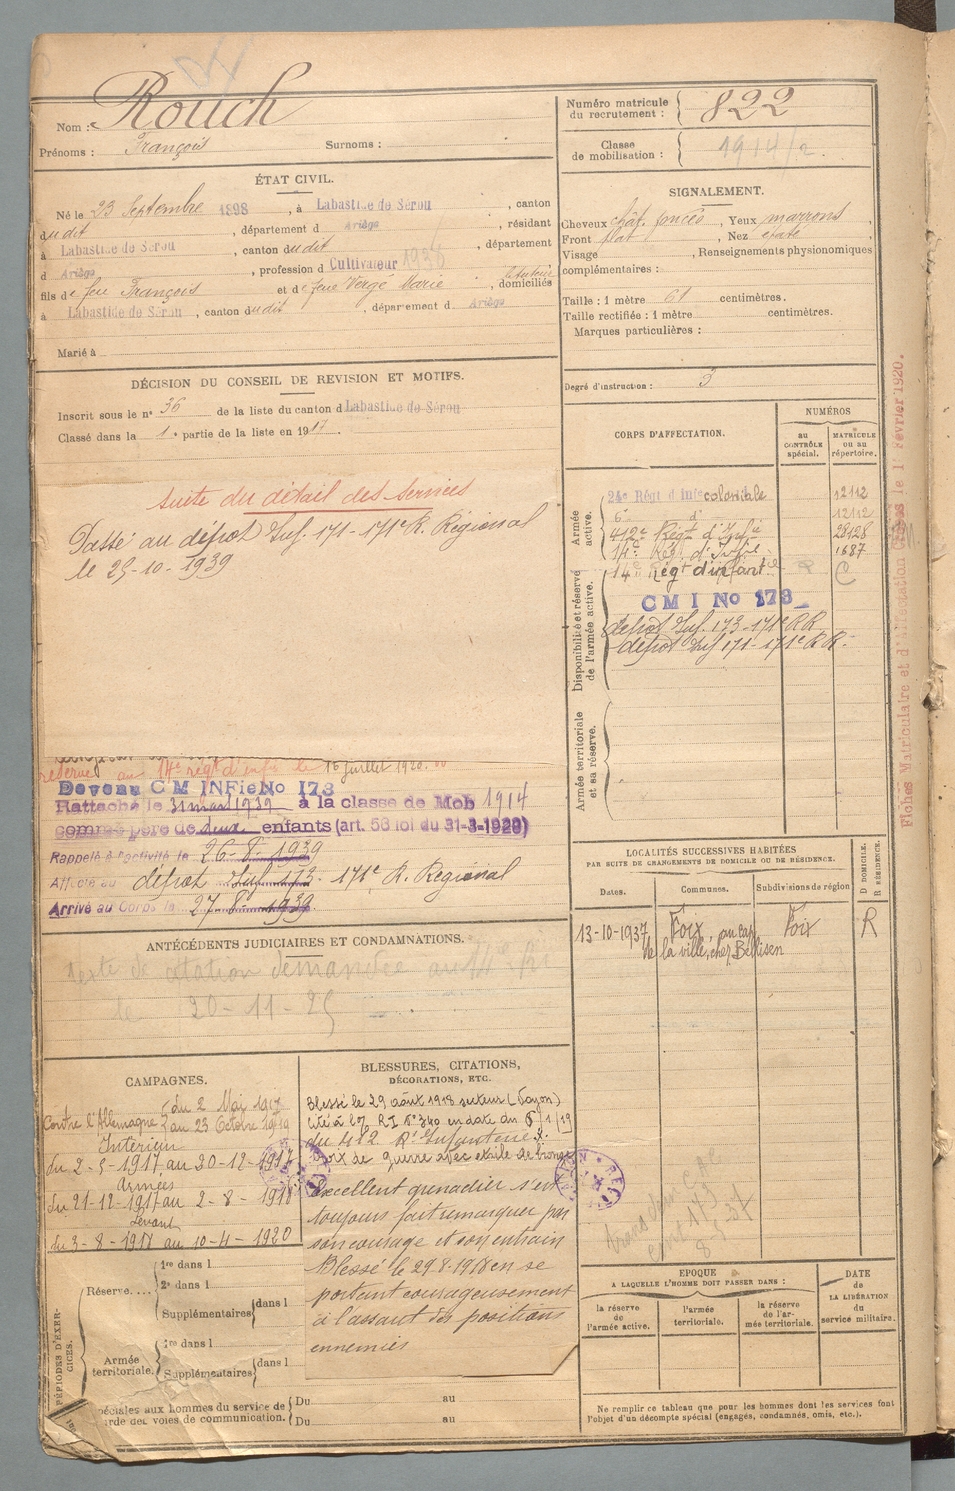 Nom : Rouch
Prénoms : François Surnoms :
Numéro matricule du recrutement : 822
Classe de mobilisation : 1914/2.
ÉTAT CIVIL.
Né le 23 Septembre 1898, à Labastide de Sérou, canton
dudit, département d Ariège, résidant
à Labastide de Sérou, canton dudit, département
d Ariège, profession d Cultivateur
fils de feu François et de feue Vergé Marie, domiciliés
à Labastide de Sérou, canton dudit, département d Ariège
Marié à
SIGNALEMENT.
Cheveux chât. foncés, Yeux marrons,
Front Nez
Visage , Renseignements physionomiques
complémentaires :
Taille : 1 mètre 61 centimètres.
Taille rectifiée : 1 mètre centimètres.
Marques particulières :
Degré d'instruction : 3
DÉCISION DU CONSEIL DE REVISION ET MOTIFS.
Inscrit sous le n° 36 de la liste du canton d Labastide de Sérou
Classé dans la 1e partie de la liste en 1917.
suite du détail des services
Passé au dépôt Inf. 171-171e R. Régional
le 25-10-1939
réserve au 14e régt d'infie le 16 juillet 1920.
Devenu C M INFie No 173
Rattaché le 31 mars 1939 à la classe de Mob 1914
comme père de deux enfants (art. 58 loi du 31-3-1928)
Rappelé à l'activité le 26-8-1939
Affecté au dépôt Inf. 173-171e R. Régional
Arrivé au Corps le 27-8-1939
CORPS D'AFFECTATION.
NUMÉROS
au CONTRÔLE spécial.
MATRICULE ou au répertoire.
Armée active.
24e Régt d'infie coloniale 12112
6e d° 12112
412e Régt d'Infie 28128
14e Rég. d'Infie 1687
Disponibilité et réserve de l'armée active.
14e Régt d'infantie
C M I No 173
dépôt Inf. 173-171e RR
dépôt Inf 171-171e RR
Armée territoriale et sa réserve.
Fiches Matriculaire et d'Affectation le 1r Février 1920.
LOCALITÉS SUCCESSIVES HABITÉES
PAR SUITE DE CHANGEMENTS DE DOMICILE OU DE RÉSIDENCE.
Dates. Communes. Subdivisions de région D DOMICILE. R RÉSIDENCE.
13-10-1937 Foix, Foix R
de la ville, chez Bellisen
ANTÉCÉDENTS JUDICIAIRES ET CONDAMNATIONS.
Texte de citation demandée au 14e RI
le 20-11-25
CAMPAGNES.
Contre l'Allemagne du 2 Mai 1917
au 23 Octobre 1919
Intérieur
du 2-5-1917 au 20-12-1917
Armées
du 21-12-1917 au 2-8-1918
Levant
du 3-8-1918 au 10-4-1920
BLESSURES, CITATIONS,
DÉCORATIONS, ETC.
Blessé le 29 août 1918 secteur (Noyon)
Cité à l'o/ RI N° 340 en date du 6/1/19
du 412 Rt Infanterie.
Croix de guerre avec étoile de bronze
excellent grenadier s'est
toujours fait remarquer par
son courage et son entrain
Blessé le 29 8-1918 en se
portant courageusement
à l'assaut des positions
ennemies
PÉRIODES D'EXERCICES.
Réserve....
1re dans l
2e dans l
Supplémentaires dans l
Armée territoriale.
1re dans l
Supplémentaires dans l
Spéciales aux hommes du service de garde des voies de communication.
Du au
Du au
EPOQUE
A LAQUELLE L'HOMME DOIT PASSER DANS :
la réserve de l'armée active.
l'armée territoriale.
la réserve de l'armée territoriale.
DATE DE LA LIBÉRATION du service militaire.
Ne remplir ce tableau que pour les hommes dont les services font
l'objet d'un décompte spécial (engagés, condamnés, omis, etc.).